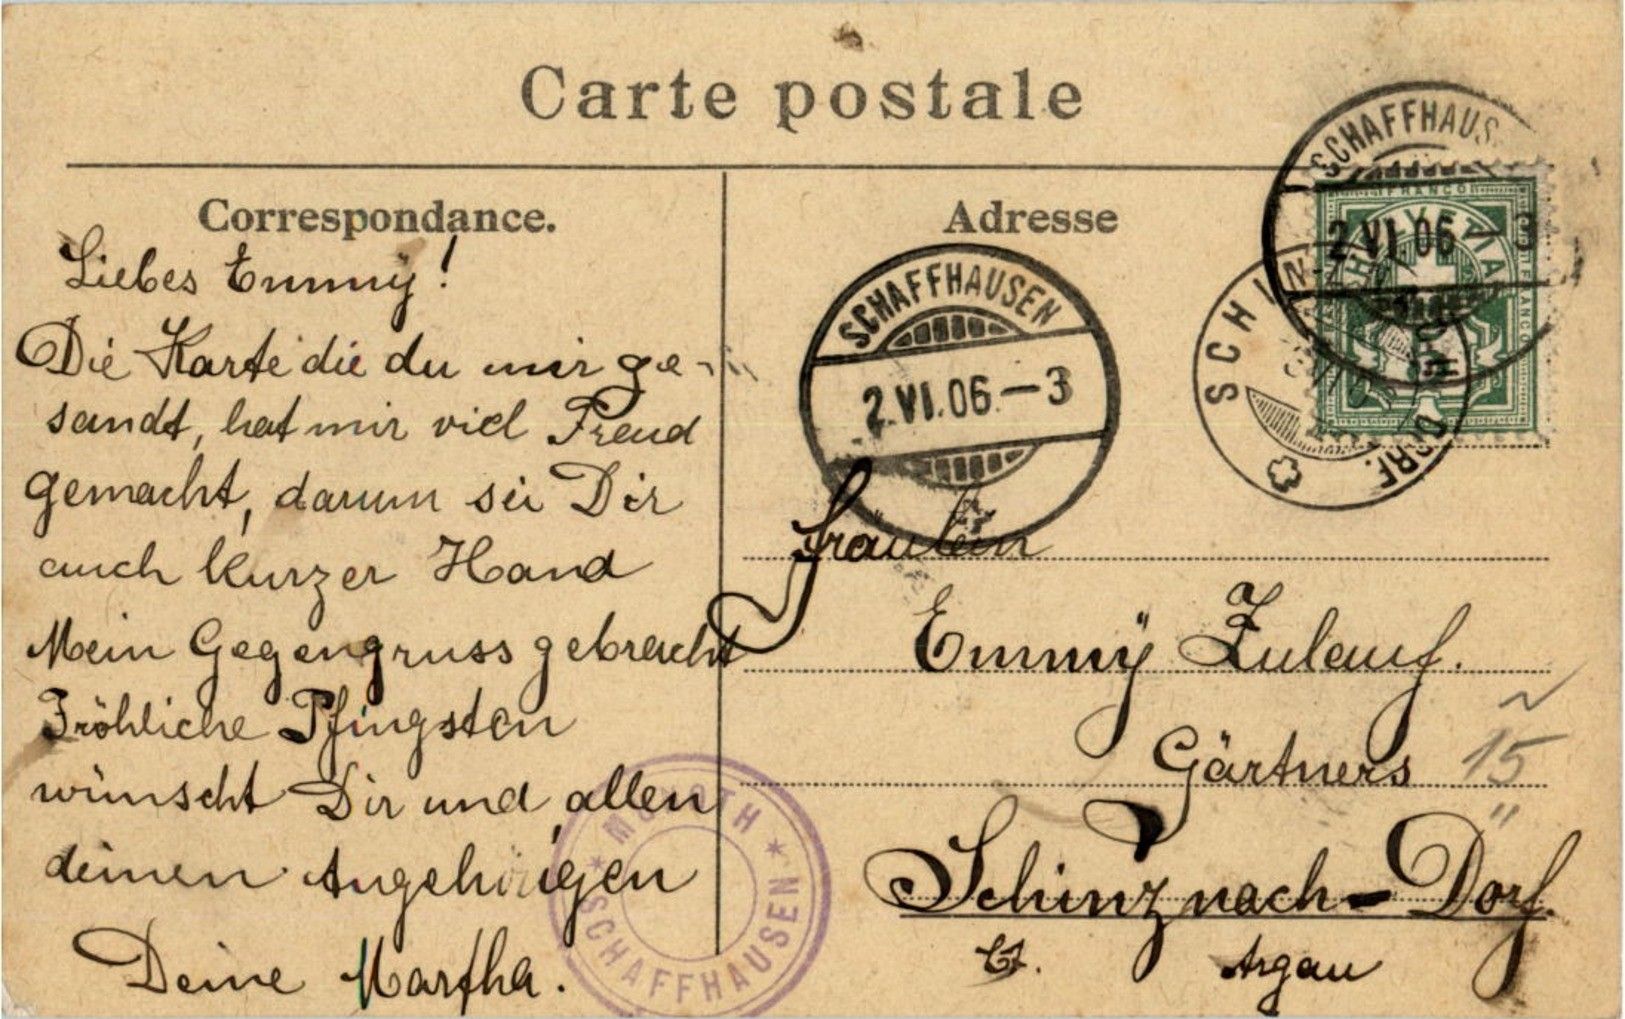 Carte postale
Correspondance.
Liebes Emmÿ!
Die Karte die du mir ge-
sandt, hat mir viel Freud
gemacht, darum sei Dir
auch kurzer Hand
Mein Gegengruss gebracht
Fröhliche Pfingsten
wünscht Dir und allen
deinen Angehörigen
Deine Martha.
Adresse
SCHAFFHAUSEN
2.VI.06.-3
SCHAFFHAUS
2 VI 06 - 3
FRANCO
HELVETIA
FRANCO
SCHINZNACH DORF.
Fräulein
Emmÿ Zulauf.
Gärtners
15
Schinznach-Dörf.
Kt. Argau
SCHAFFHAUSEN